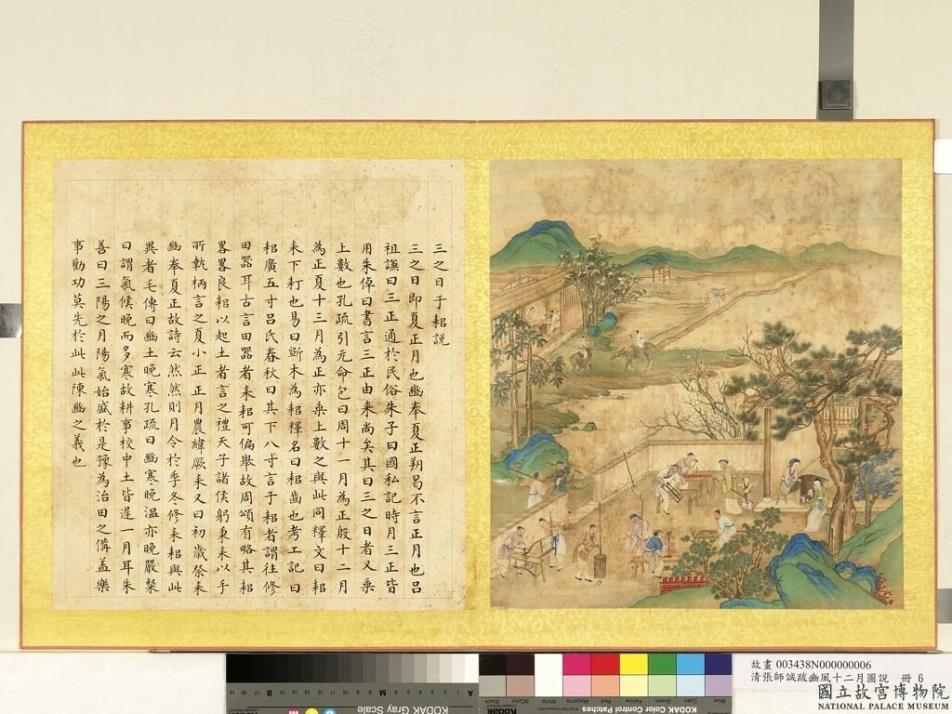 三之日于耜說
三之日即夏正月也豳奉夏正朔易不言正月也呂
祖謙曰三正通於民俗朱子曰國私記時月三正皆
用朱倬曰書言三正由来尚矣其曰三之日者又乗
上數也孔疏引元命乞曰周十一月為正殷十二月
為正夏十三月為正亦乗上數之與此同釋文曰耜
耒下打也易曰斵木為耜釋名曰耜齒也考工記曰
耜廣五寸呂氏春秋曰其下八寸言于耜者謂往修
田器耳古言田器者耒耜可偏舉故周頌有略其耜
畟畟良耜以起土者言之禮天子諸侯躬秉耒以手
所執柄言之夏小正正月農緯厥耒又曰初歲祭耒
豳奉夏正故詩云然然則月令於季冬修耒耜與此
異者毛傳曰豳土晚寒孔疏曰豳寒晚温亦晚嚴粲
曰謂氣候晚而多寒故耕事校中土皆遲一月耳朱
善曰三陽之月陽氣始盛於是豫為治田之備蓋樂
事勸功莫先於此此陳豳之義也
故畫 003438N000000006
清張師誠跋豳風十二月圖說 冊 6
國立故宮博物院
NATIONAL PALACE MUSEUM
KODAK Gray Scale
KODAK Color Control Patches